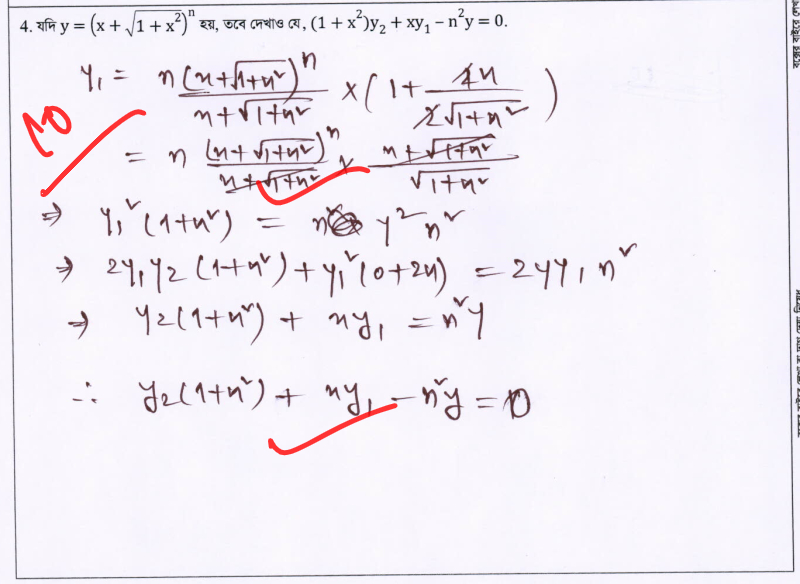 4. যদি y = (x + √(1 + x²))ⁿ হয়, তবে দেখাও যে, (1 + x²)y₂ + xy₁ – n²y = 0.
y₁ = n (x+√(1+x²))ⁿ / (x+√(1+x²)) × (1 + 2x / 2√(1+x²))
10
= n (x+√(1+x²))ⁿ / (x+√(1+x²)) × (x+√(1+x²)) / √(1+x²)
⇒ y₁² (1+x²) = y² n²
⇒ 2y₁y₂ (1+x²) + y₁² (0+2x) = 2yy₁ n²
⇒ y₂(1+x²) + xy₁ = n²y
∴ y₂(1+x²) + xy₁ – n²y = 0